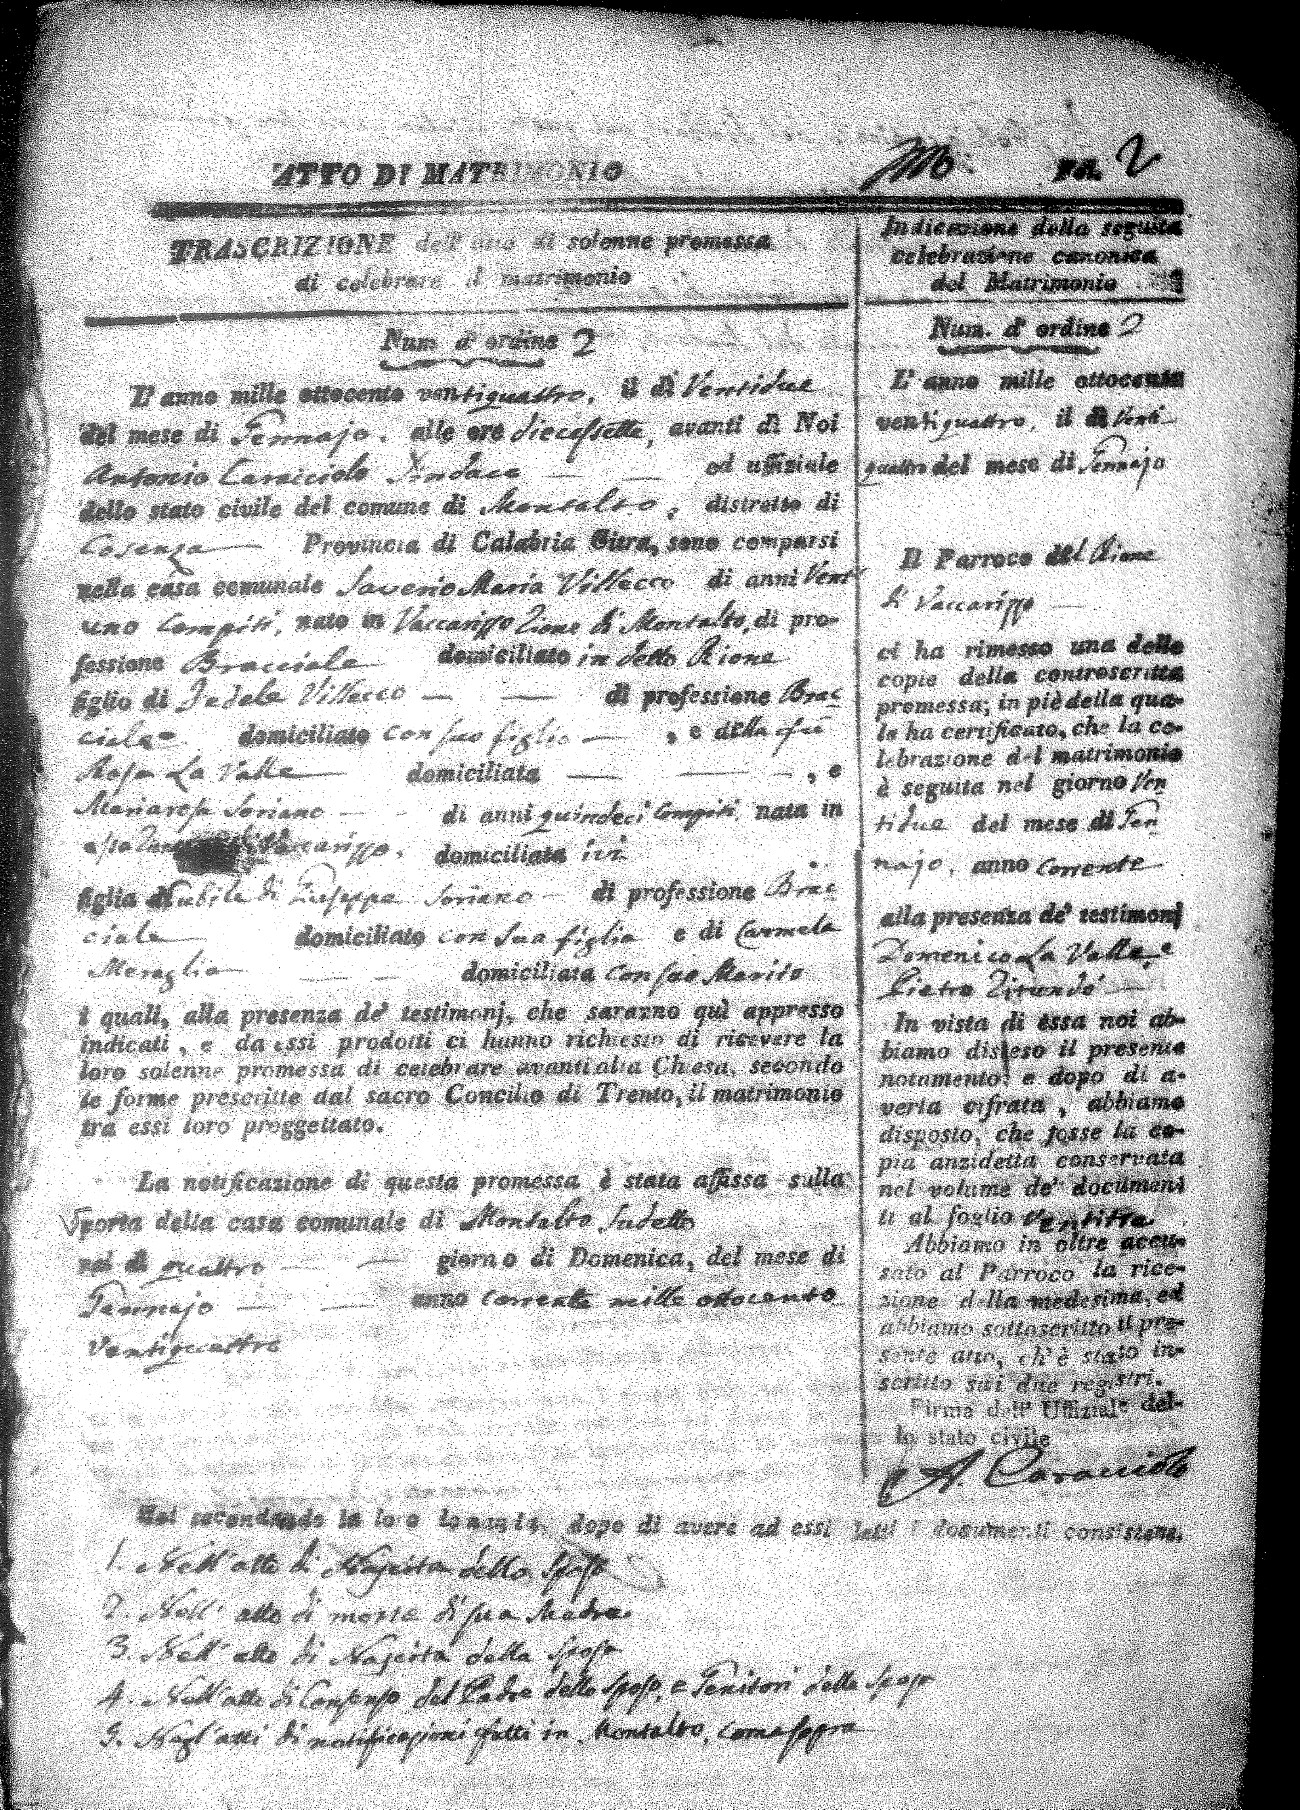 ATTO DI MATRIMONIO
Fol. 2
TRASCRIZIONE dell' atto di solenne promessa
di celebrare il matrimonio
Num. d' ordine 2
L' anno mille ottocento ventiquattro, il dì Ventidue
del mese di Gennajo, alle ore diecassette, avanti di Noi
Antonio Caracciolo Sindaco ed uffiziale
dello stato civile del comune di Montalto, distretto di
Cosenza Provincia di Calabria Citra, sono comparsi
nella casa comunale Saverio Maria Villecco di anni Vent
uno Compiti, nato in Vaccarizzo Rione di Montalto, di pro-
fessione Bracciale domiciliato in detto Rione
figlio di Fedele Villecco di professione Brac
ciale domiciliato con suo figlio, e della fù
Rosa La Valle domiciliata , e
Mariarosa Soriano di anni quindeci Compiti nata in
Vaccarizzo, domiciliata ivi
figlia di Giuseppe Soriano di professione Brac
ciale domiciliato con sua figlia e di Carmela
Meraglia domiciliata con suo Marito
i quali, alla presenza de' testimonj, che saranno quì appresso
indicati, e da essi prodotti ci hanno richiesto di ricevere la
loro solenne promessa di celebrare avanti alla Chiesa, secondo
le forme prescritte dal sacro Concilio di Trento, il matrimonio
tra essi loro proggettato.
La notificazione di questa promessa è stata affissa sulla
porta della casa comunale di Montalto Sudetto
nel dì quattro giorno di Domenica, del mese di
Gennajo anno corrente mille ottocento
ventiquattro
Indicazione della seguita
celebrazione canonica
del Matrimonio
Num. d' ordine 2
L' anno mille ottocento
ventiquattro, il dì Venti
quattro del mese di Gennajo
Il Parroco del Rione
di Vaccarizzo
ci ha rimesso una delle
copie della controscritta
promessa; in piè della qua-
le ha certificato, che la ce-
lebrazione del matrimonio
è seguita nel giorno Ven
tidue del mese di Gen
najo, anno corrente
alla presenza de' testimonj
Domenico La Valle, e
Pietro
In vista di essa noi ab-
biamo disteso il presente
notamento; e dopo di a-
verla cifrata, abbiamo
disposto, che fosse la co-
pia anzidetta conservata
nel volume de' documen-
ti al foglio ventitre
Abbiamo in oltre accu-
sato al Parroco la rice-
zione della medesima, ed
abbiamo sottoscritto il pre-
sente atto, ch'è stato in-
scritto sui due registri.
Firma dell' Uffiziale del-
lo stato civile
A. Caracciolo
Noi secondando la loro domanda, dopo di avere ad essi letti i documenti consistenti
1. Nell'atto di Nascita dello Sposo
2. Nell' atto di morte di sua Madre.
3. Nell' atto di Nascita della Sposa
4. Nell'atto di Consenso del Padre dello Sposo, e Genitori della Sposa
5. Negl'atti di notificazioni fatti in Montalto, come sopra